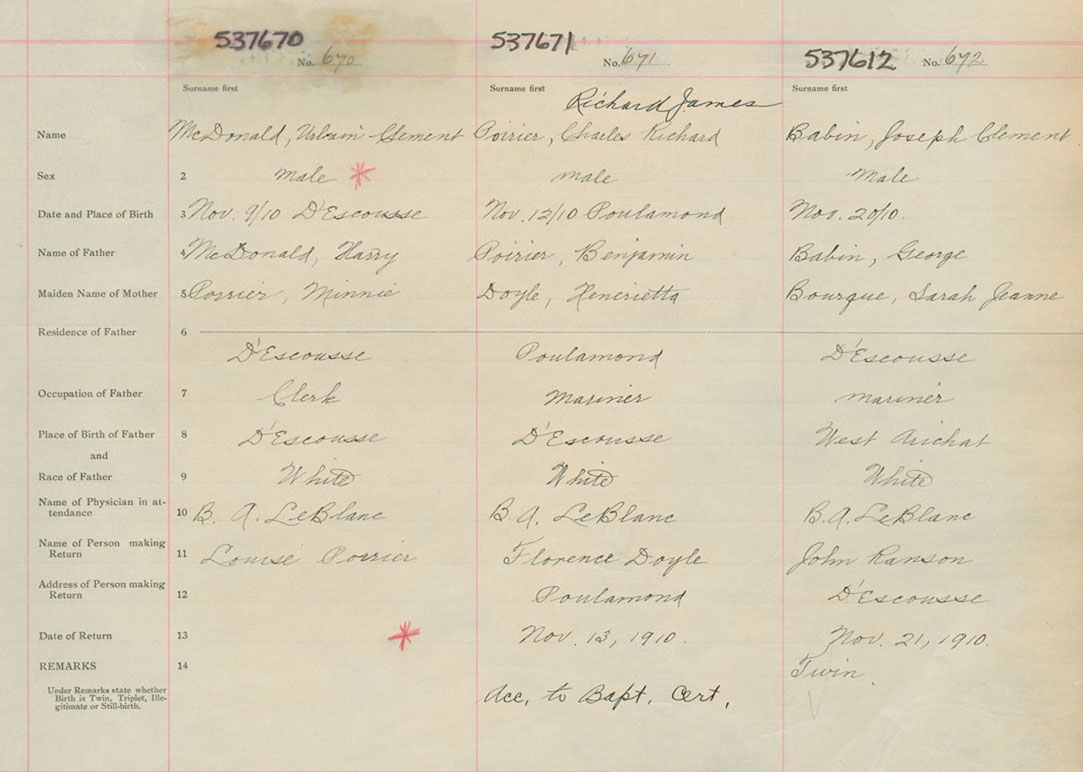 537670 537671 537612
No. 670 No. 671 No. 672
Surname first Surname first Surname first
Richard James
Name McDonald, Urbain Clement Poirier, Charles Richard Babin, Joseph Clement
Sex 2 male * male male
Date and Place of Birth 3 Nov. 9/10 D'Escousse Nov. 12/10 Poulamond Nov. 20/10.
Name of Father 4 McDonald, Harry Poirier, Benjamin Babin, George
Maiden Name of Mother 5 Porrier, Minnie Doyle, Henerietta Bourque, Sarah Jeanne
Residence of Father 6
D'Escousse Poulamond D'Escousse
Occupation of Father 7 Clerk Mariner mariner
Place of Birth of Father 8 D'Escousse D'Escousse West Arichat
and
Race of Father 9 White White White
Name of Physician in at-
tendance 10 B. A. LeBlanc B. A. LeBlanc B. A. LeBlanc
Name of Person making
Return 11 Louise Porrier Florence Doyle John Ranson
Address of Person making
Return 12 Poulamond D'Escousse
Date of Return 13 * Nov. 13, 1910. Nov. 21, 1910.
REMARKS 14 Twin
Under Remarks state whether
Birth is Twin, Triplet, Ille-
gitimate or Still-birth.
Acc. to Bapt. Cert.